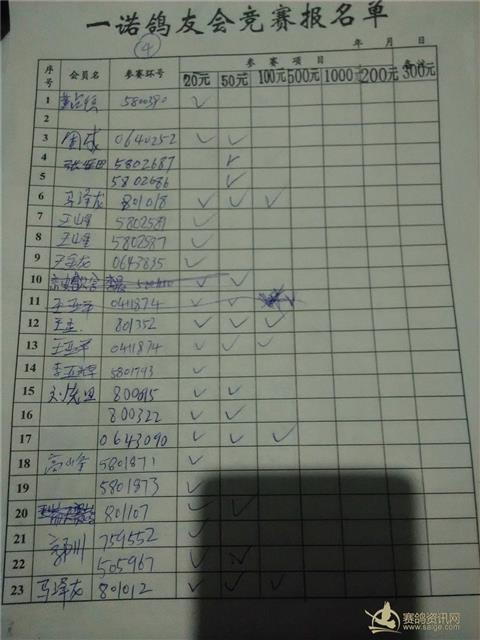 一诺鸽友会竞赛报名单
4
年 月 日
序号 会员名 参赛环号 参赛项目
20元 50元 100元 500元 1000元 200元 300元
1 5800390 ✓
2
3 周成 0640252 ✓ ✓
4 5802687 ✓
5 5802686 ✓
6 马泽龙 801018 ✓ ✓ ✓
7 王山奎 5802581 ✓
8 王山奎 5802587 ✓
9 0643835 ✓
10 ✓ ✓
11 王亚军 0411874 ✓ ✓
12 801352 ✓ ✓ ✓
13 王亚军 0411874 ✓ ✓ ✓
14 李亚辉 5801793 ✓
15 800695 ✓ ✓
16 800322 ✓ ✓
17 0643090 ✓ ✓ ✓
18 高山奎 5801871 ✓
19 5801873 ✓
20 801107 ✓ ✓
21 759552 ✓
22 505967 ✓ ✓
23 马泽龙 801012 ✓ ✓ ✓
赛鸽资讯网
www.saige.com